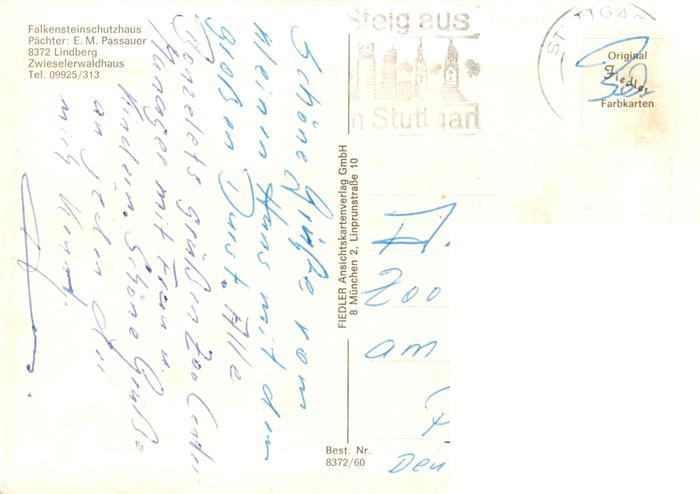 Falkensteinschutzhaus
Pächter: E. M. Passauer
8372 Lindberg
Zwieselerwaldhaus
Tel. 09925/313
Schöne Grüße vom
kleinen Hans mit dem
großen Durst. Alle
grüßen Zoo
Manager mit Frau u.
Kindern. Schöne Grüße
an jeden die
mich kennt.
FIEDLER Ansichtskartenverlag GmbH
8 München 2, Linprunstraße 10
Best. Nr.
8372/60
Steig aus
in Stuttgart
STUTTGA
Original
Fiedler
Farbkarten
Zoo
am